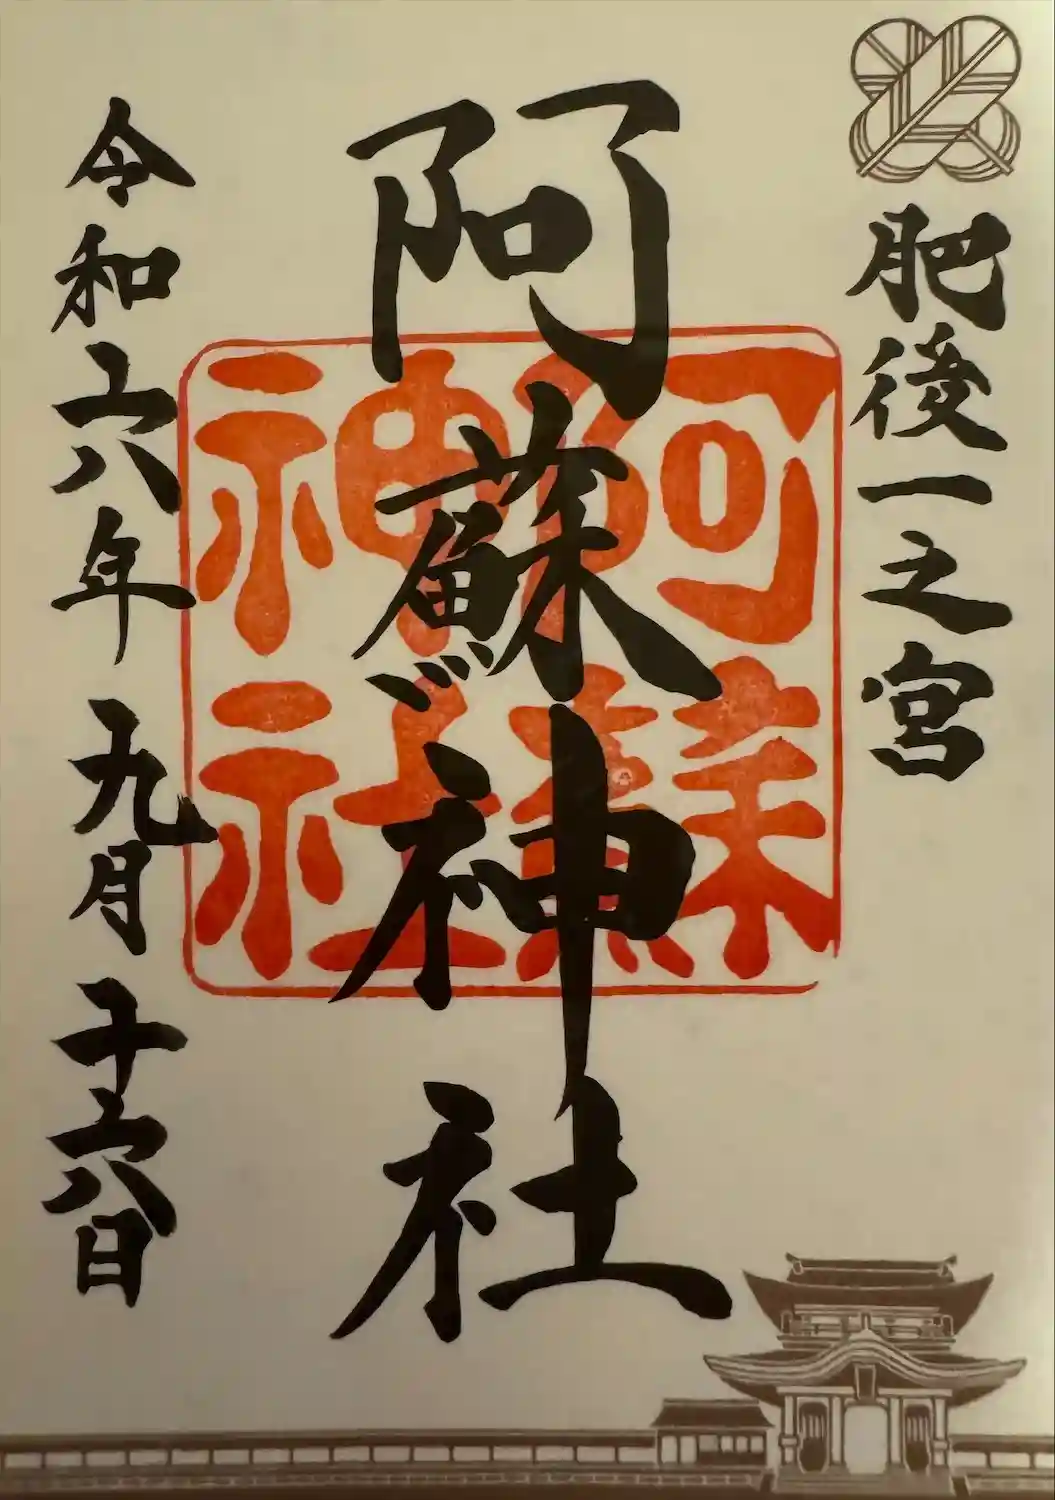 肥後一之宮
阿蘇神社
阿蘇神社
令和六年九月十六日